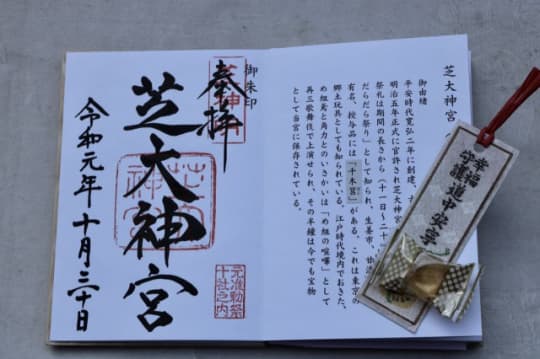 芝大神宮
御由緒
平安時代寛弘二年に創建、
明治五年正式に官許され芝大神宮
祭礼は期間の長さから(十一日〜二十一
だらだら祭り」として知られ、生姜市、甘酒
有名。授与品には「千木筥」がある。これは東京の
郷土玩具としても知られている。江戸時代境内でおきた、
め組鳶と角力とのいさかいは「め組の喧嘩」として
再三歌舞伎で上演せられ、その半鐘は今でも宝物
として当宮に保存されている。
御朱印
奉拝
芝大神宮
令和元年十月三十日
元准勅祭
十社之内
幸福
守護道中安全